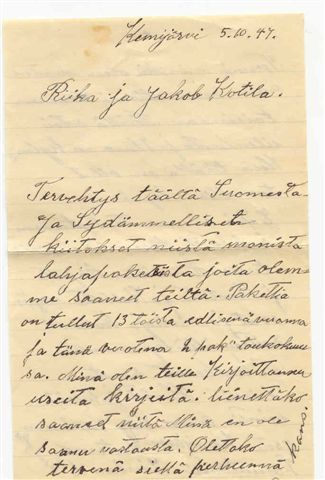 Kemijärvi 5.10.47.
Riika ja Jakob Kotila.
Tervehtys täältä Suomesta
Ja Sydämmelliset
kiitokset niistä monista
lahjapaketista joita olem-
me saaneet teiltä. Pakettia
on tullut 13 toista edllisenä vuonna
ja tänä vuotena 2 pak" toukokuu
sa. Minä olen teille Kirjoittanu
useita kirjeitä. lienettäkö
saaneet niitä Minä en ole
saanu vastausta. Olettako
tervenä siellä perheennä
kans.